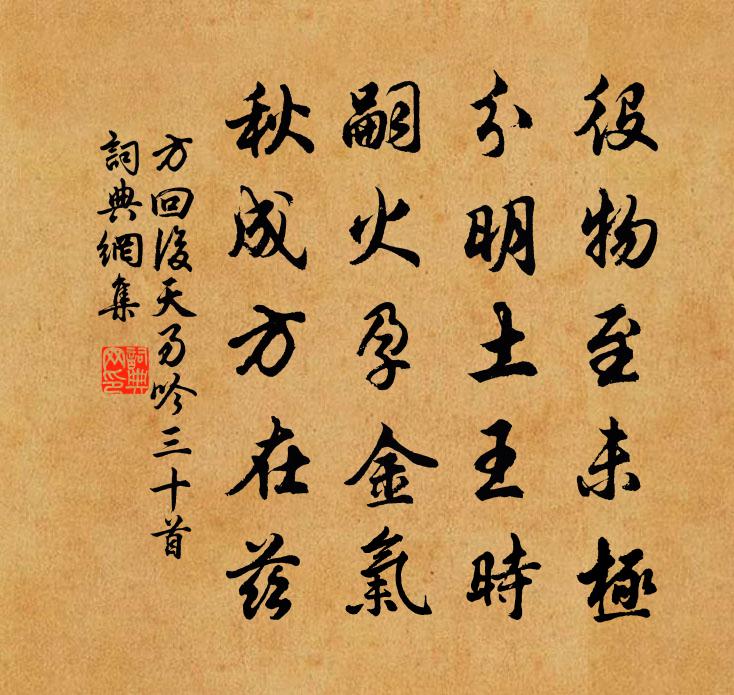 役物至未極
分明土王時
嗣火孕金氣
秋成方在茲
方回後天易吟三十首
詞典網集
詞典網印